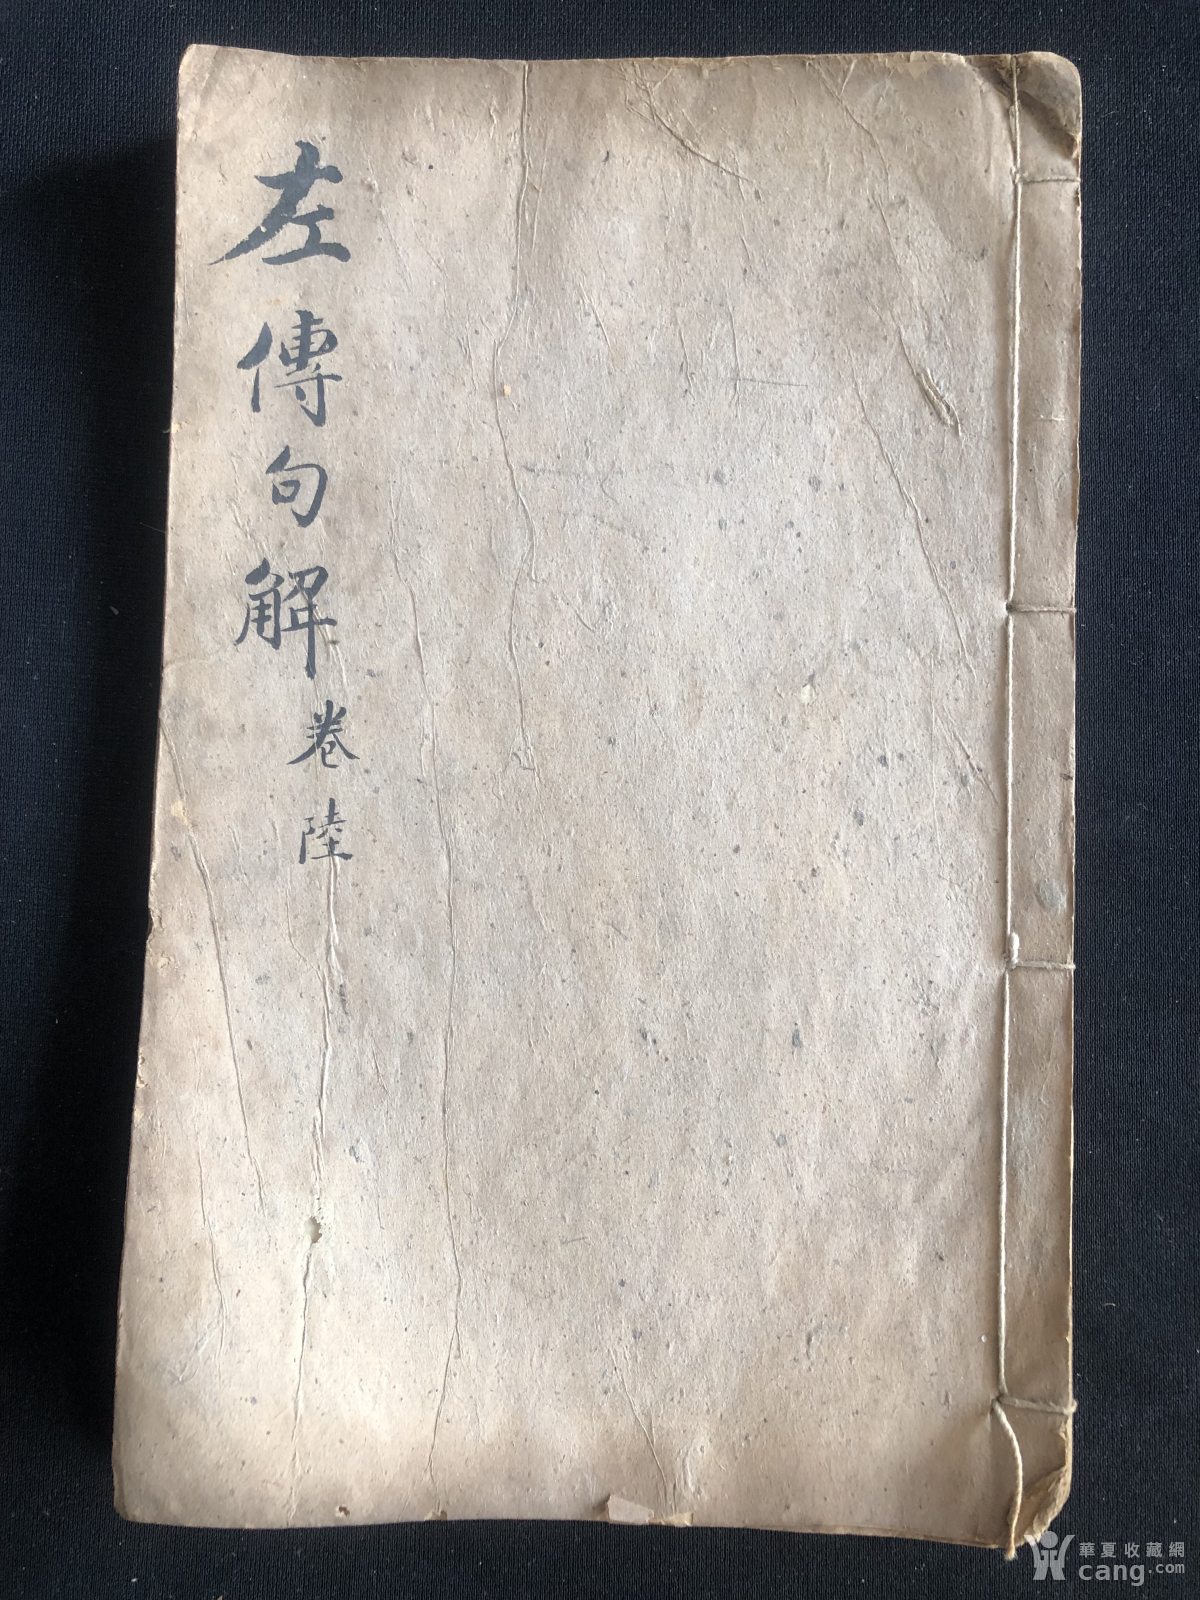 左傳句解
卷陸
華夏收藏網
cang.com